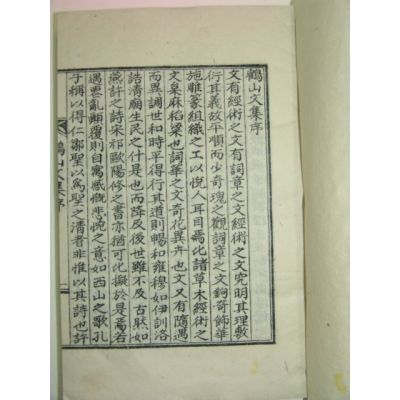 鶴山文集序
文有經術之文有詞章之文經術之文究明其理敷
衍其義故平順而少奇瑰之觀詞章之文鉤奇飾華
施雕篆組織之工以悅人耳目焉比諸草木經術之
文桑麻稻粱也詞華之文奇花異卉也文又有隨遇
而異調世和平得行其道則暢和雍穆如伊訓洛
誥淸廟生民之什是也而降及後世雖不及古然如
燕許之詩宋祁歐陽修之書亦猶可化擬於是焉若
遇罢亂顚覆則自寓感慨悲惋之意如西山之歌孔
子稱以得仁鄒聖以爲聖之淸者非惟以其詩也許
鶴山文集序